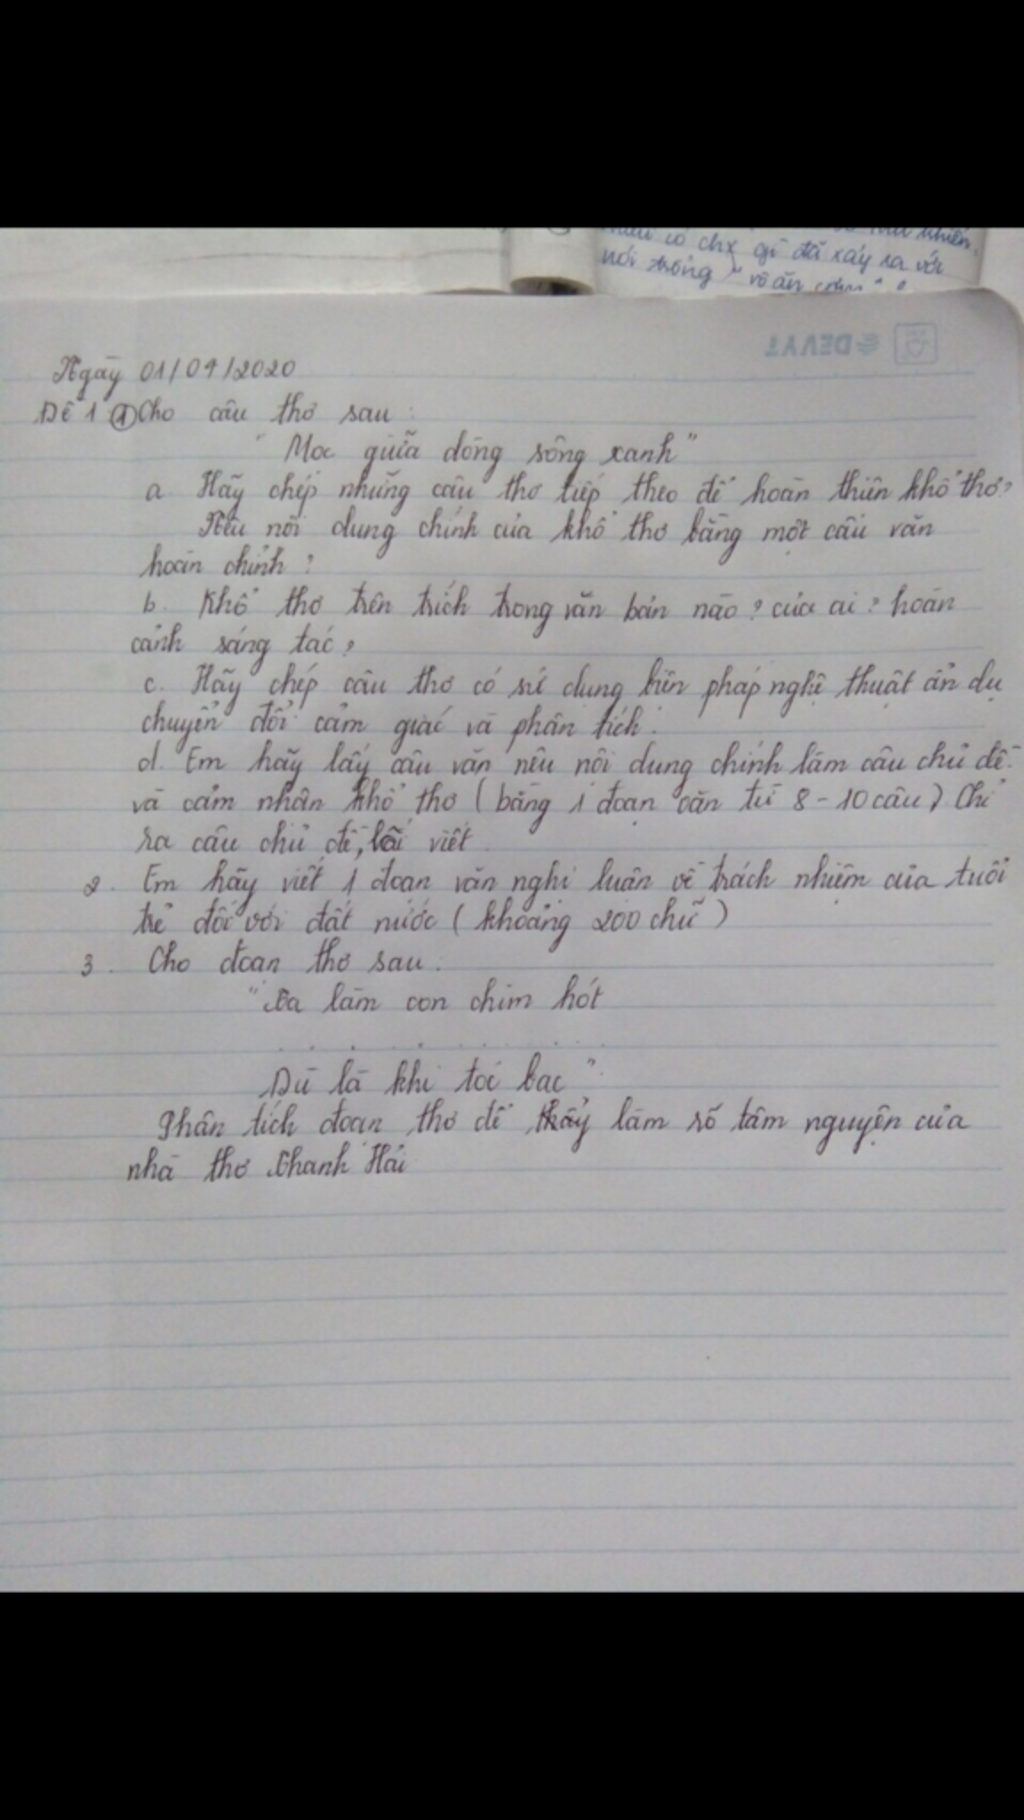 có chx gì đã xảy ra với
nói thông "vô ăn
DEVYT
Ngày 01/04/2020
Đề 1 ① Cho câu thơ sau :
"Mọc giữa dòng sông xanh"
a. Hãy chép những câu thơ tiếp theo để hoàn thiện khổ thơ?
Nêu nội dung chính của khổ thơ bằng một câu văn
hoàn chỉnh ?
b. Khổ thơ trên trích trong văn bản nào ? của ai ? hoàn
cảnh sáng tác ?
c. Hãy chép câu thơ có sử dụng biện pháp nghệ thuật ẩn dụ
chuyển đổi cảm giác và phân tích.
d. Em hãy lấy câu văn nêu nội dung chính làm câu chủ đề
và cảm nhận khổ thơ ( bằng 1 đoạn văn từ 8 - 10 câu ) Chỉ
ra câu chủ đề, lối viết
2. Em hãy viết 1 đoạn văn nghị luận về trách nhiệm của tuổi
trẻ đối với đất nước ( khoảng 200 chữ )
3. Cho đoạn thơ sau :
"Ta làm con chim hót
. . . . . . . . .
Dù là khi tóc bạc"
Phân tích đoạn thơ để thấy làm rõ tâm nguyện của
nhà thơ Thanh Hải